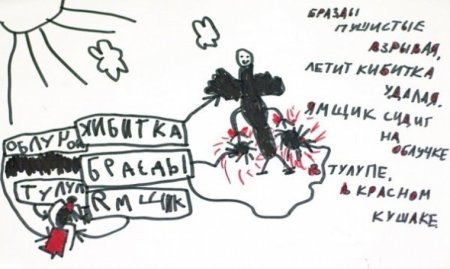 КИБИТКА
БРАЗДЫ
ТУЛУП
ЯМЩИК
БРАЗДЫ
ПУШИСТЫЕ
ВЗРЫВАЯ,
ЛЕТИТ КИБИТКА
УДАЛАЯ.
ЯМЩИК СИДИТ
НА
ОБЛУЧКЕ
В ТУЛУПЕ,
В КРАСНОМ
КУШАКЕ